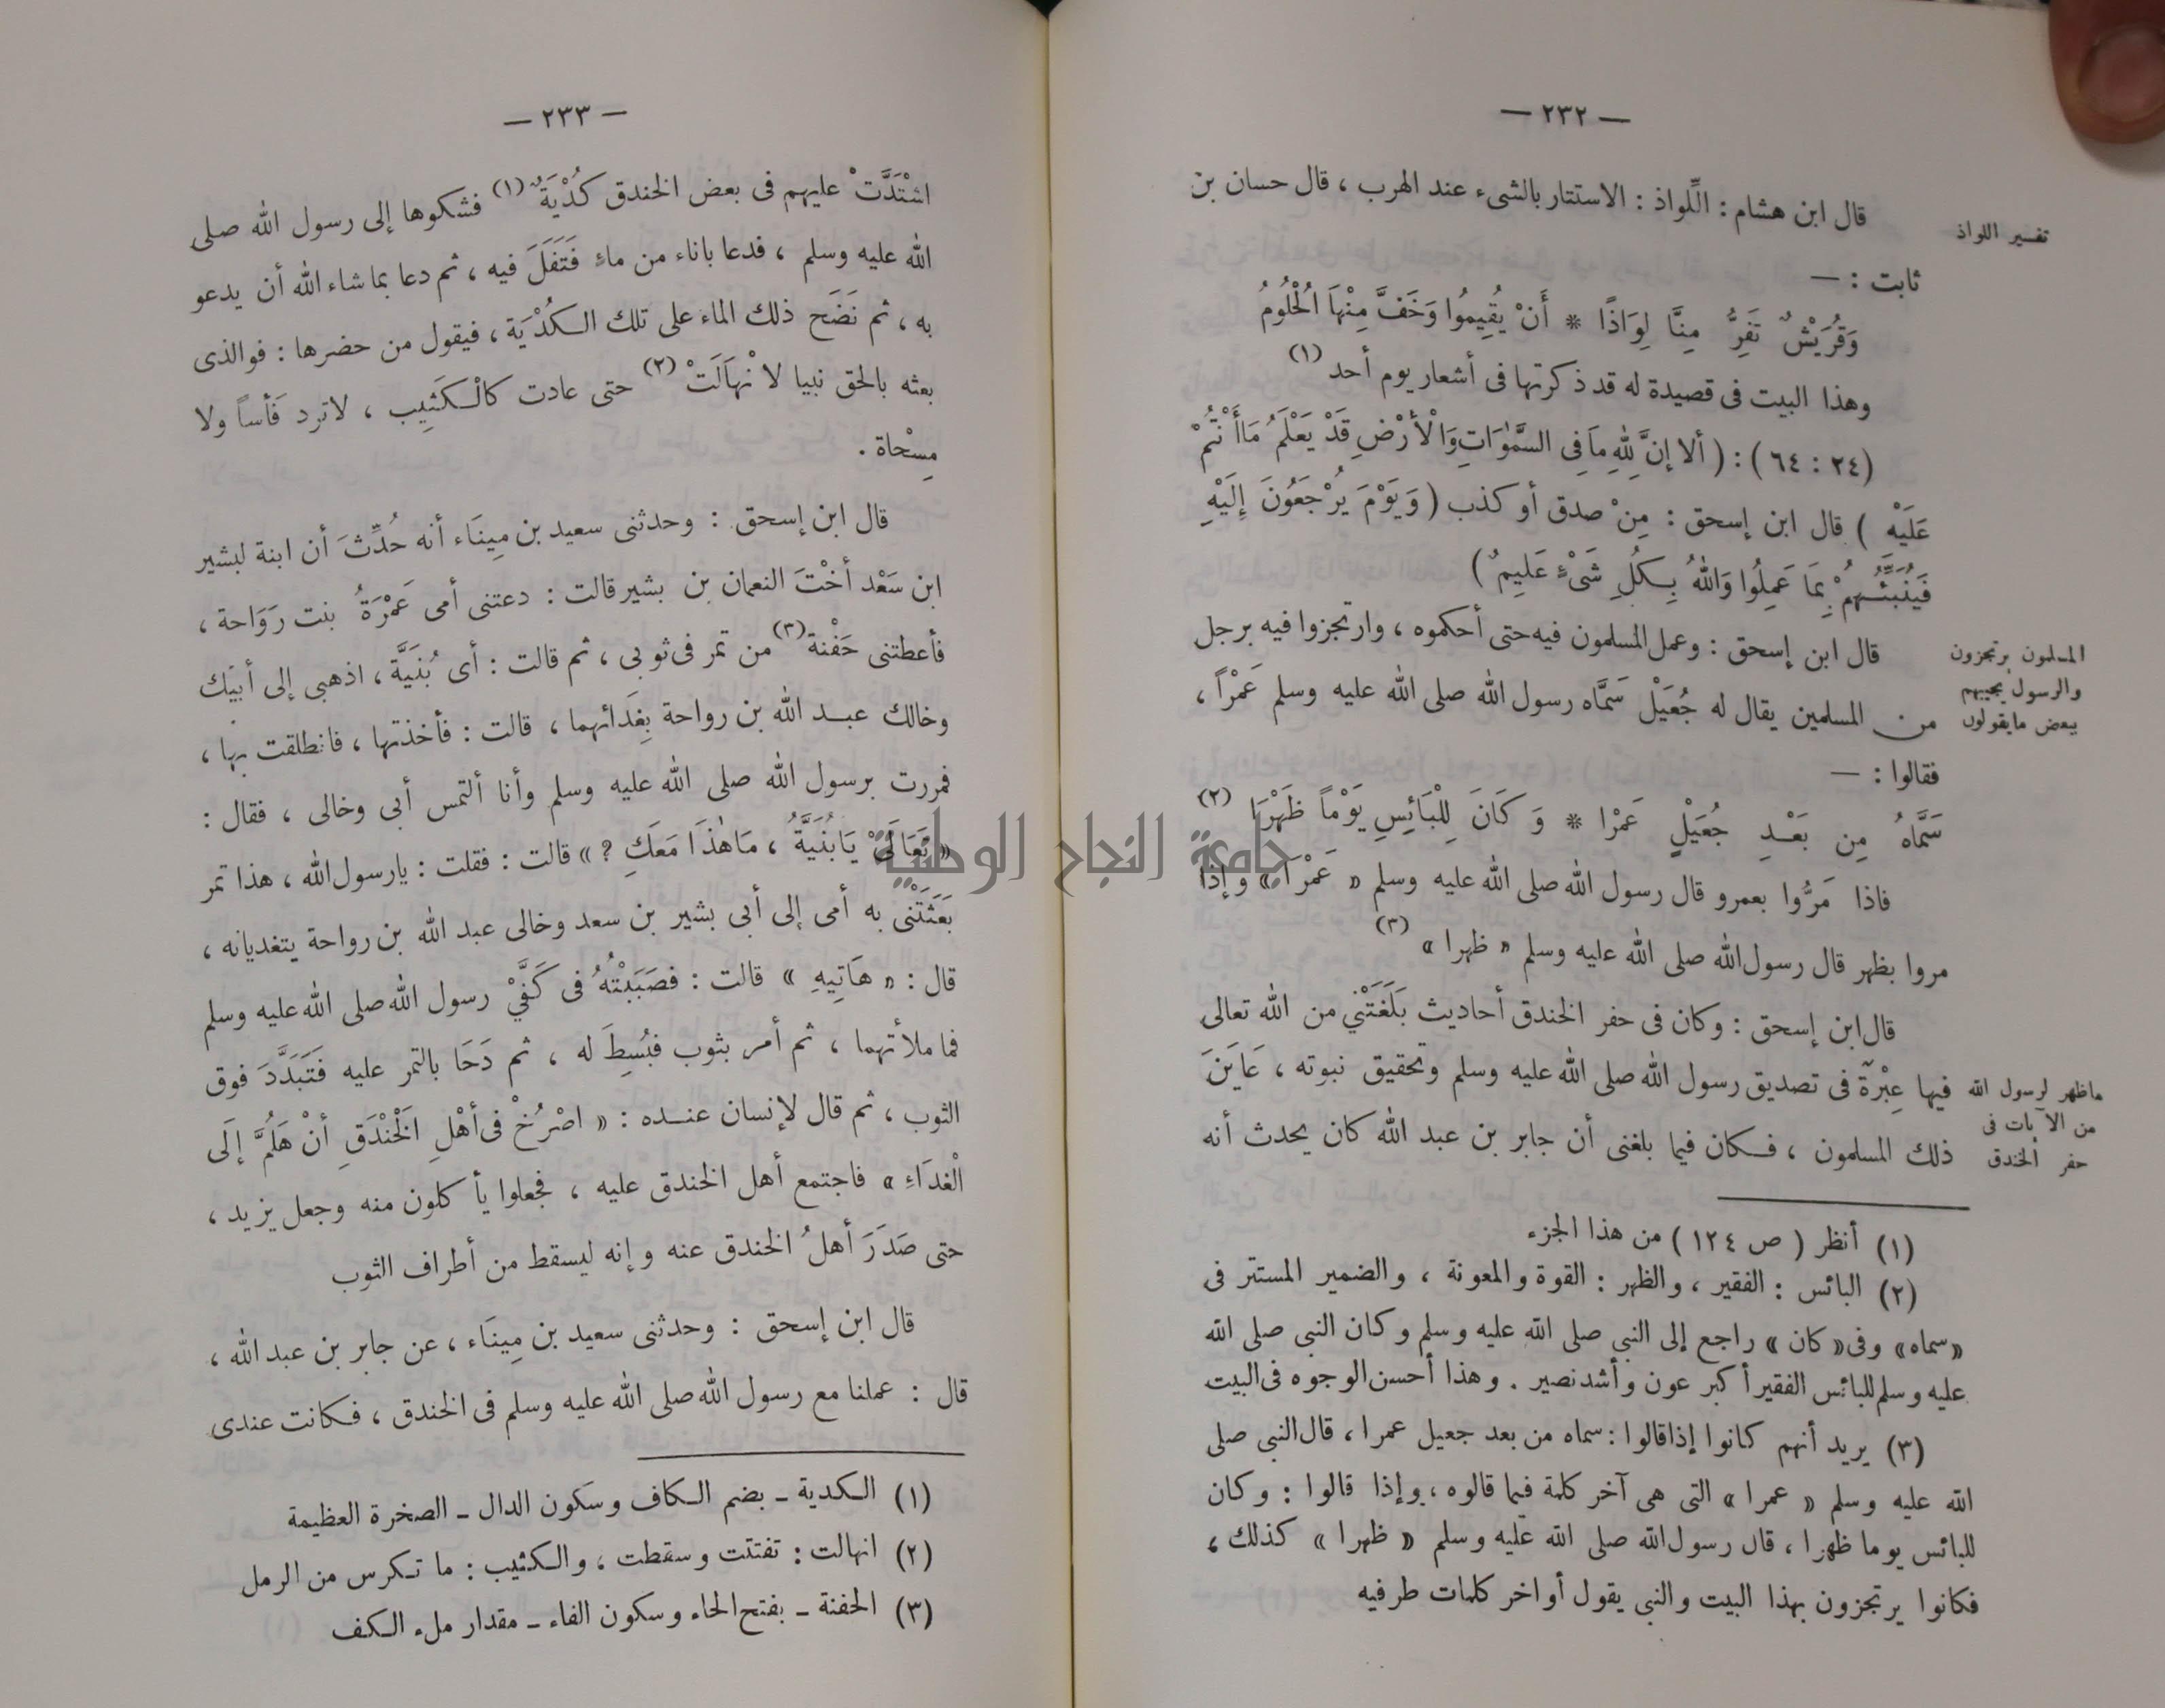 — ٢٣٢ —
تفسير اللواذ
قال ابن هشام : اللِّواذ : الاستتار بالشىء عند الهرب ، قال حسان بن
ثابت : —
وَقُرَيْشٌ تَفِرُّ مِنَّا لِوَاذًا * أَنْ يُقِيمُوا وَخَفَّ مِنْهَا الْحُلُومُ
وهذا البيت فى قصيدة له قد ذكرتها فى أشعار يوم أحد (١)
(٢٤ : ٦٤ ) : ( ألا إنَّ لِلهِ مَا فِى السَّمٰوَاتِ وَالْأرْضِ قَدْ يَعْلَمُ مَا أَنْتُمْ
عَلَيْهِ ) قال ابن إسحق : مِنْ صدق أو كذب ( وَيَوْمَ يُرْجَعُونَ إِلَيْهِ
فَيُنَبِّئُهُمْ بِمَا عَمِلُوا وَاللهُ بِكُلِّ شَىْءٍ عَلِيمٌ )
المسلمون يرتجزون
والرسول يجيبهم
ببعض مايقولون
قال ابن إسحق : وعمل المسلمون فيه حتى أحكموه ، وارتجزوا فيه برجل
من المسلمين يقال له جُعَيْل سَمَّاه رسول الله صلى الله عليه وسلم عَمْرًا ،
فقالوا : —
سَمَّاهُ مِن بَعْدِ جُعَيْلٍ عَمْرا * وَكَانَ لِلْبَائِسِ يَوْماً ظَهْرَا (٢)
فاذا مَرُّوا بعمرو قال رسول الله صلى الله عليه وسلم « عَمْرَا » وإذا
مروا بظهر قال رسول الله صلى الله عليه وسلم « ظهرا » (٣)
قال ابن إسحق : وكان فى حفر الخندق أحاديث بَلَغَتْنِي من الله تعالى
ماظهر لرسول الله
من الآيات فى
حفر الخندق
فيها عِبْرَة فى تصديق رسول الله صلى الله عليه وسلم وتحقيق نبوته ، عَايَنَ
ذلك المسلمون ، فكان فيما بلغنى أن جابر بن عبد الله كان يحدث أنه
(١) أنظر ( ص ١٢٤ ) من هذا الجزء
(٢) البائس : الفقير ، والظهر : القوة والمعونة ، والضمير المستتر فى
«سماه» وفى «كان» راجع إلى النبي صلى الله عليه وسلم وكان النبي صلى الله
عليه وسلم للبائس الفقير أكبر عون وأشد نصير . وهذا أحسن الوجوه فى البيت
(٣) يريد أنهم كانوا إذا قالوا : سماه من بعد جعيل عمرا ، قال النبي صلى
الله عليه وسلم « عمرا » التى هى آخر كلمة فيما قالوه ، وإذا قالوا : وكان
للبائس يوما ظهرا ، قال رسول الله صلى الله عليه وسلم « ظهرا » كذلك ،
فكانوا يرتجزون بهذا البيت والنبي يقول أواخر كلمات طرفيه
— ٢٣٣ —
اشْتَدَّتْ عليهم فى بعض الخندق كُدْيَةٌ (١) فشكوها إلى رسول الله صلى
الله عليه وسلم ، فدعا باناء من ماءٍ فَتَفَلَ فيه ، ثم دعا بما شاء الله أن يدعو
به ، ثم نَضَح ذلك الماء على تلك الكُدْيَة ، فيقول من حضرها : فوالذى
بعثه بالحق نبيا لانْهَالَتْ (٢) حتى عادت كالْكَثِيِب ، لا ترد فَأساً ولا
مِسْحاة .
قال ابن إسحق : وحدثنى سعيد بن مِينَاء أنه حُدِّثَ أن ابنة لبشير
ابن سَعْد أخْتَ النعمان بن بشير قالت : دعتنى أمى عَمْرَةُ بنت رَوَاحة ،
فأعطتنى حَفْنة (٣) من تمر فى ثوبى ، ثم قالت : أى بُنَيَّة ، اذهبى إلى أبيك
وخالك عبد الله بن رواحة بِغَدائهما ، قالت : فأخذتها ، فانطلقت بها ،
فمررت برسول الله صلى الله عليه وسلم وأنا ألتمس أبى وخالى ، فقال :
« تَعَالَىْ يَابُنَيَّةُ ، مَاهٰذَا مَعَكِ ? » قالت : فقلت : يارسول الله ، هذا تمر
بَعَثَتْنى به أمى إلى أبى بشير بن سعد وخالى عبد الله بن رواحة يتغديانه ،
قال : « هَاتِيهِ » قالت : فصَبَبْتُهُ فى كَفَّيْ رسول الله صلى الله عليه وسلم
فما ملأتهما ، ثم أمر بثوب فبُسِطَ له ، ثم دَحَا بالتمر عليه فَتَبَدَّدَ فوق
الثوب ، ثم قال لإنسان عنده : « اصْرُخْ فى أهْلِ الْخَنْدَقِ أنْ هَلُمَّ إلَى
الْغدَاءِ » فاجتمع أهل الخندق عليه ، فجعلوا يأكلون منه وجعل يزيد ،
حتى صَدَرَ أهلُ الخندق عنه وإنه ليسقط من أطراف الثوب
قال ابن إسحق : وحدثنى سعيد بن مِينَاء ، عن جابر بن عبد الله ،
قال : عملنا مع رسول الله صلى الله عليه وسلم فى الخندق ، فكانت عندى
(١) الكدية – بضم الكاف وسكون الدال – الصخرة العظيمة
(٢) انهالت : تفتتت وسقطت ، والكثيب : ما تكرس من الرمل
(٣) الحفنة – بفتح الحاء وسكون الفاء – مقدار ملء الكف
جامعة النجاح الوطنية